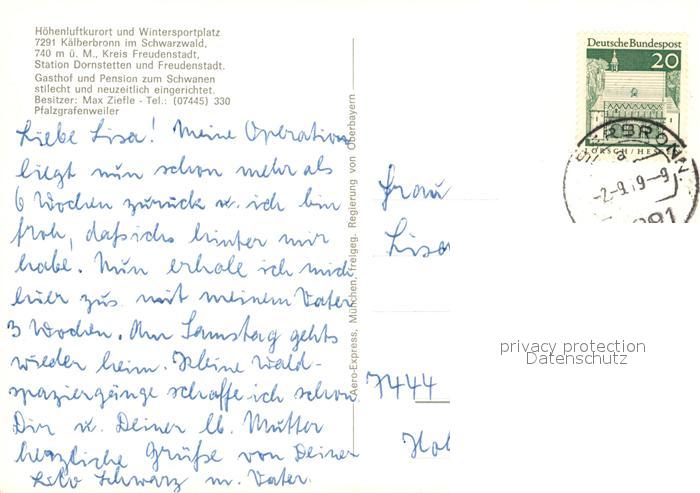 Höhenluftkurort und Wintersportplatz
7291 Kälberbronn im Schwarzwald,
740 m ü. M., Kreis Freudenstadt,
Station Dornstetten und Freudenstadt.
Gasthof und Pension zum Schwanen
stilecht und neuzeitlich eingerichtet.
Besitzer: Max Ziefle - Tel.: (07445) 330
Pfalzgrafenweiler
Liebe Lisa! Meine Operation
liegt nun schon mehr als
6 Wochen zurück u. ich bin
froh, daß ichs hinter mir
habe. Nun erhole ich mich
hier zus. mit meinem Vater
3 Wochen. Am Samstag gehts
wieder heim. Kleine Wald-
spaziergänge schaffe ich schon.
Dir u. Deiner lb. Mutter
herzliche Grüße von Deiner
Schwarz m. Vater.
Aero-Express, München, freigeg. Regierung von Oberbayern
Deutsche Bundespost
20
LORSCH/HESSEN
a
-2-9.19-9
Frau
Lisa
7444
privacy protection
Datenschutz